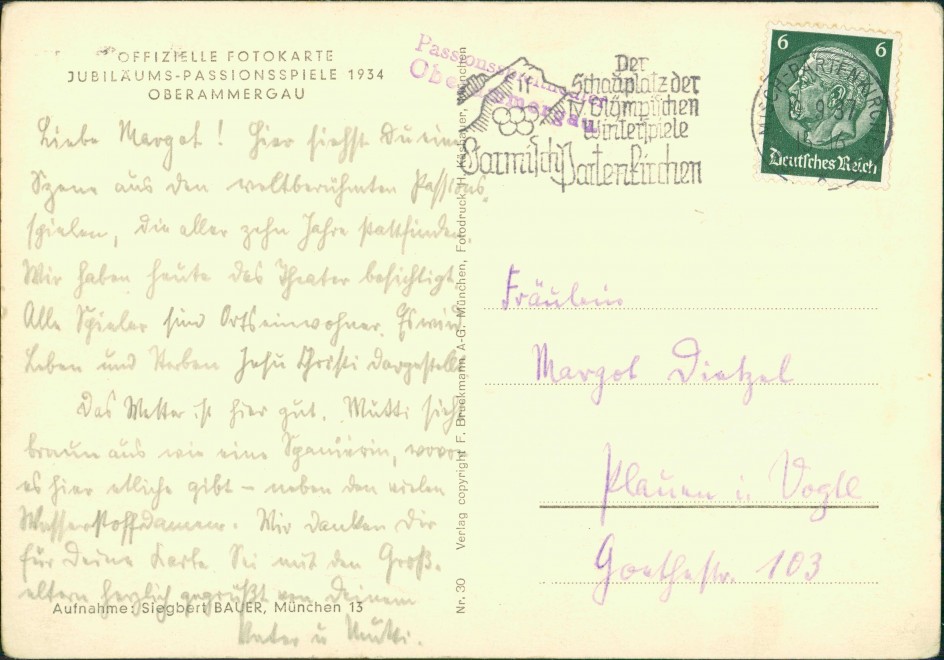 OFFIZIELLE FOTOKARTE
JUBILÄUMS-PASSIONSSPIELE 1934
OBERAMMERGAU
Liebe Margot! Hier siehst Du eine
Szene aus den weltberühmten Passions
spielen, die aller zehn Jahre stattfinden.
Wir haben heute das Theater besichtigt.
Alle Spieler sind Ortseinwohner. Es wird
Leben und Sterben Jesu Christi dargestellt.
Das Wetter ist hier gut. Mutti sieht
braun aus wie eine Spanierin, wovon
es hier etliche gibt – neben den vielen
Wasserstoffdamen. Wir danken Dir
für Deine Karte. Sei mit den Groß-
eltern herzlich gegrüßt von Deinem
Vater u Mutti.
Aufnahme: Siegbert BAUER, München 13
Nr. 30 Verlag copyright F. Bruckmann A-G. München, Fotodruck H. München
Oberammergau
Der
Schauplatz der
IV Olympischen
Winterspiele
Garmisch Partenkirchen
6 6
PARTENKIRCHEN
9.37
Deutsches Reich
Fräulein
Margot Dietzel
Plauen i. Vogtl
Goethestr. 103